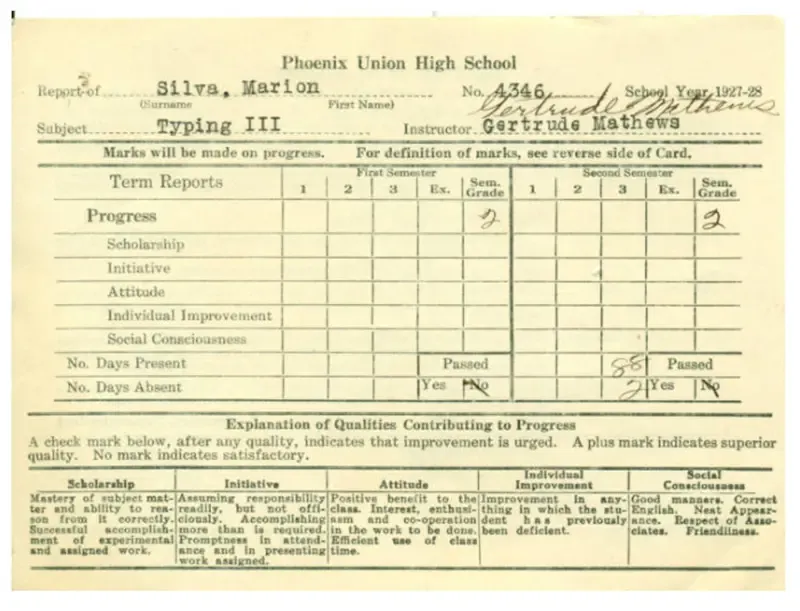 Phoenix Union High School
Report of Silva, Marion No. A346 School Year 1927-28
(Surname First Name)
Gertrude Mathews
Subject Typing III Instructor Gertrude Mathews
Marks will be made on progress. For definition of marks, see reverse side of Card.
Term Reports First Semester Second Semester
1 2 3 Ex. Sem. Grade 1 2 3 Ex. Sem. Grade
Progress 2 2
Scholarship
Initiative
Attitude
Individual Improvement
Social Consciousness
No. Days Present Passed 88 Passed
No. Days Absent Yes No 2 Yes No
Explanation of Qualities Contributing to Progress
A check mark below, after any quality, indicates that improvement is urged. A plus mark indicates superior
quality. No mark indicates satisfactory.
Scholarship
Mastery of subject mat-
ter and ability to rea-
son from it correctly.
Successful accomplish-
ment of experimental
and assigned work.
Initiative
Assuming responsibility
readily, but not offi-
ciously. Accomplishing
more than is required.
Promptness in attend-
ance and in presenting
work assigned.
Attitude
Positive benefit to the
class. Interest, enthusi-
asm and co-operation
in the work to be done.
Efficient use of class
time.
Individual
Improvement
Improvement in any-
thing in which the stu-
dent has previously
been deficient.
Social
Consciousness
Good manners. Correct
English. Neat Appear-
ance. Respect of Asso-
ciates. Friendliness.